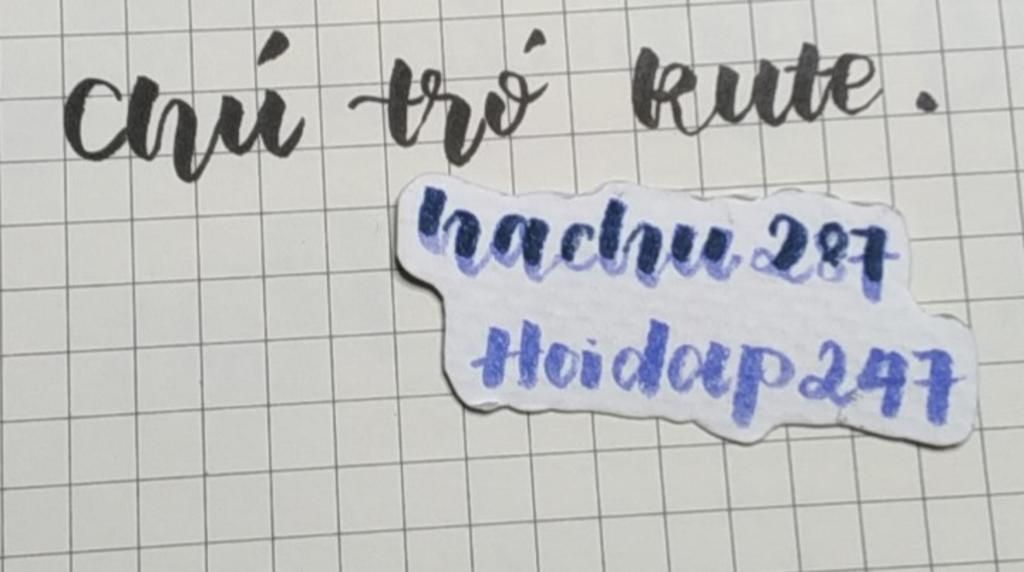 Chú tró kute.
hachu287
Hoidap247